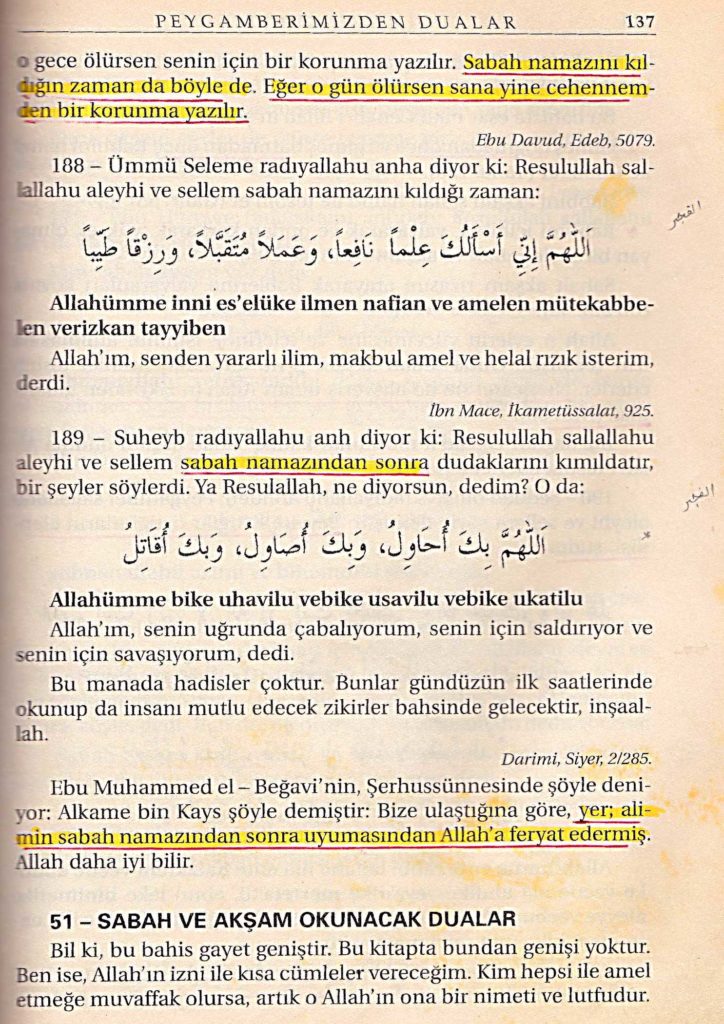 PEYGAMBERİMİZDEN DUALAR 137
o gece ölürsen senin için bir korunma yazılır. Sabah namazını kıl-
dığın zaman da böyle de. Eğer o gün ölürsen sana yine cehennem-
den bir korunma yazılır.
Ebu Davud, Edeb, 5079.
188 – Ümmü Seleme radıyallahu anha diyor ki: Resulullah sal-
lallahu aleyhi ve sellem sabah namazını kıldığı zaman:
الفجر
اَللّٰهُمَّ اِنِّي أَسْأَلُكَ عِلْماً نَافِعاً، وَعَمَلاً مُتَقَبَّلاً، وَرِزْقاً طَيِّباً
Allahümme inni es'elüke ilmen nafian ve amelen mütekabbe-
len verizkan tayyiben
Allah'ım, senden yararlı ilim, makbul amel ve helal rızık isterim,
derdi.
İbn Mace, İkametüssalat, 925.
189 – Suheyb radıyallahu anh diyor ki: Resulullah sallallahu
aleyhi ve sellem sabah namazından sonra dudaklarını kımıldatır,
bir şeyler söylerdi. Ya Resulallah, ne diyorsun, dedim? O da:
الفجر
اَللّٰهُمَّ بِكَ أُحَاوِلُ، وَبِكَ أُصَاوِلُ، وَبِكَ أُقَاتِلُ
Allahümme bike uhavilu vebike usavilu vebike ukatilu
Allah'ım, senin uğrunda çabalıyorum, senin için saldırıyor ve
senin için savaşıyorum, dedi.
Bu manada hadisler çoktur. Bunlar gündüzün ilk saatlerinde
okunup da insanı mutlu edecek zikirler bahsinde gelecektir, inşaal-
lah.
Darimi, Siyer, 2/285.
Ebu Muhammed el – Beğavi'nin, Şerhussünnesinde şöyle deni-
yor: Alkame bin Kays şöyle demiştir: Bize ulaştığına göre, yer; ali-
min sabah namazından sonra uyumasından Allah'a feryat edermiş.
Allah daha iyi bilir.
51 – SABAH VE AKŞAM OKUNACAK DUALAR
Bil ki, bu bahis gayet geniştir. Bu kitapta bundan genişi yoktur.
Ben ise, Allah'ın izni ile kısa cümleler vereceğim. Kim hepsi ile amel
etmeğe muvaffak olursa, artık o Allah'ın ona bir nimeti ve lutfudur.